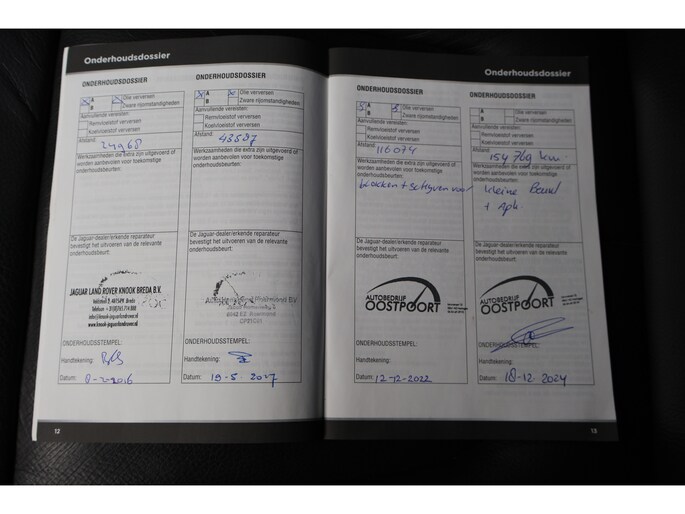 Onderhoudsdossier
ONDERHOUDSDOSSIER
A
B
Olie verversen
Zware rijomstandigheden:
Aanvullende vereisten:
Remvloeistof verversen
Koelvloeistof verversen
Afstand:
24968
Werkzaamheden die extra zijn uitgevoerd of
worden aanbevolen voor toekomstige
onderhoudsbeurten:
De Jaguar-dealer/erkende reparateur
bevestigt het uitvoeren van de relevante
onderhoudsbeurt:
JAGUAR LAND ROVER KNOOK BREDA B.V.
Breda
www.knook-jaguarlandrover.nl
ONDERHOUDSSTEMPEL:
Handtekening:
Datum:
12
ONDERHOUDSDOSSIER
A
B
Olie verversen
Zware rijomstandigheden:
Aanvullende vereisten:
Remvloeistof verversen
Koelvloeistof verversen
Afstand:
43587
Werkzaamheden die extra zijn uitgevoerd of
worden aanbevolen voor toekomstige
onderhoudsbeurten:
De Jaguar-dealer/erkende reparateur
bevestigt het uitvoeren van de relevante
onderhoudsbeurt:
ONDERHOUDSSTEMPEL:
Handtekening:
Datum:
Onderhoudsdossier
ONDERHOUDSDOSSIER
A
B
Olie verversen
Zware rijomstandigheden:
Aanvullende vereisten:
Remvloeistof verversen
Koelvloeistof verversen
Afstand:
116074
Werkzaamheden die extra zijn uitgevoerd of
worden aanbevolen voor toekomstige
onderhoudsbeurten:
blokken + schijven voor
De Jaguar-dealer/erkende reparateur
bevestigt het uitvoeren van de relevante
onderhoudsbeurt:
AUTOBEDRIJF
OOSTPOORT
ONDERHOUDSSTEMPEL:
Handtekening:
Datum: 12-12-2022
ONDERHOUDSDOSSIER
A
B
Olie verversen
Zware rijomstandigheden:
Aanvullende vereisten:
Remvloeistof verversen
Koelvloeistof verversen
Afstand:
154769 km
Werkzaamheden die extra zijn uitgevoerd of
worden aanbevolen voor toekomstige
onderhoudsbeurten:
kleine Beurt
+ Apk.
De Jaguar-dealer/erkende reparateur
bevestigt het uitvoeren van de relevante
onderhoudsbeurt:
AUTOBEDRIJF
OOSTPOORT
ONDERHOUDSSTEMPEL:
Handtekening:
Datum: 18-12-2024
13